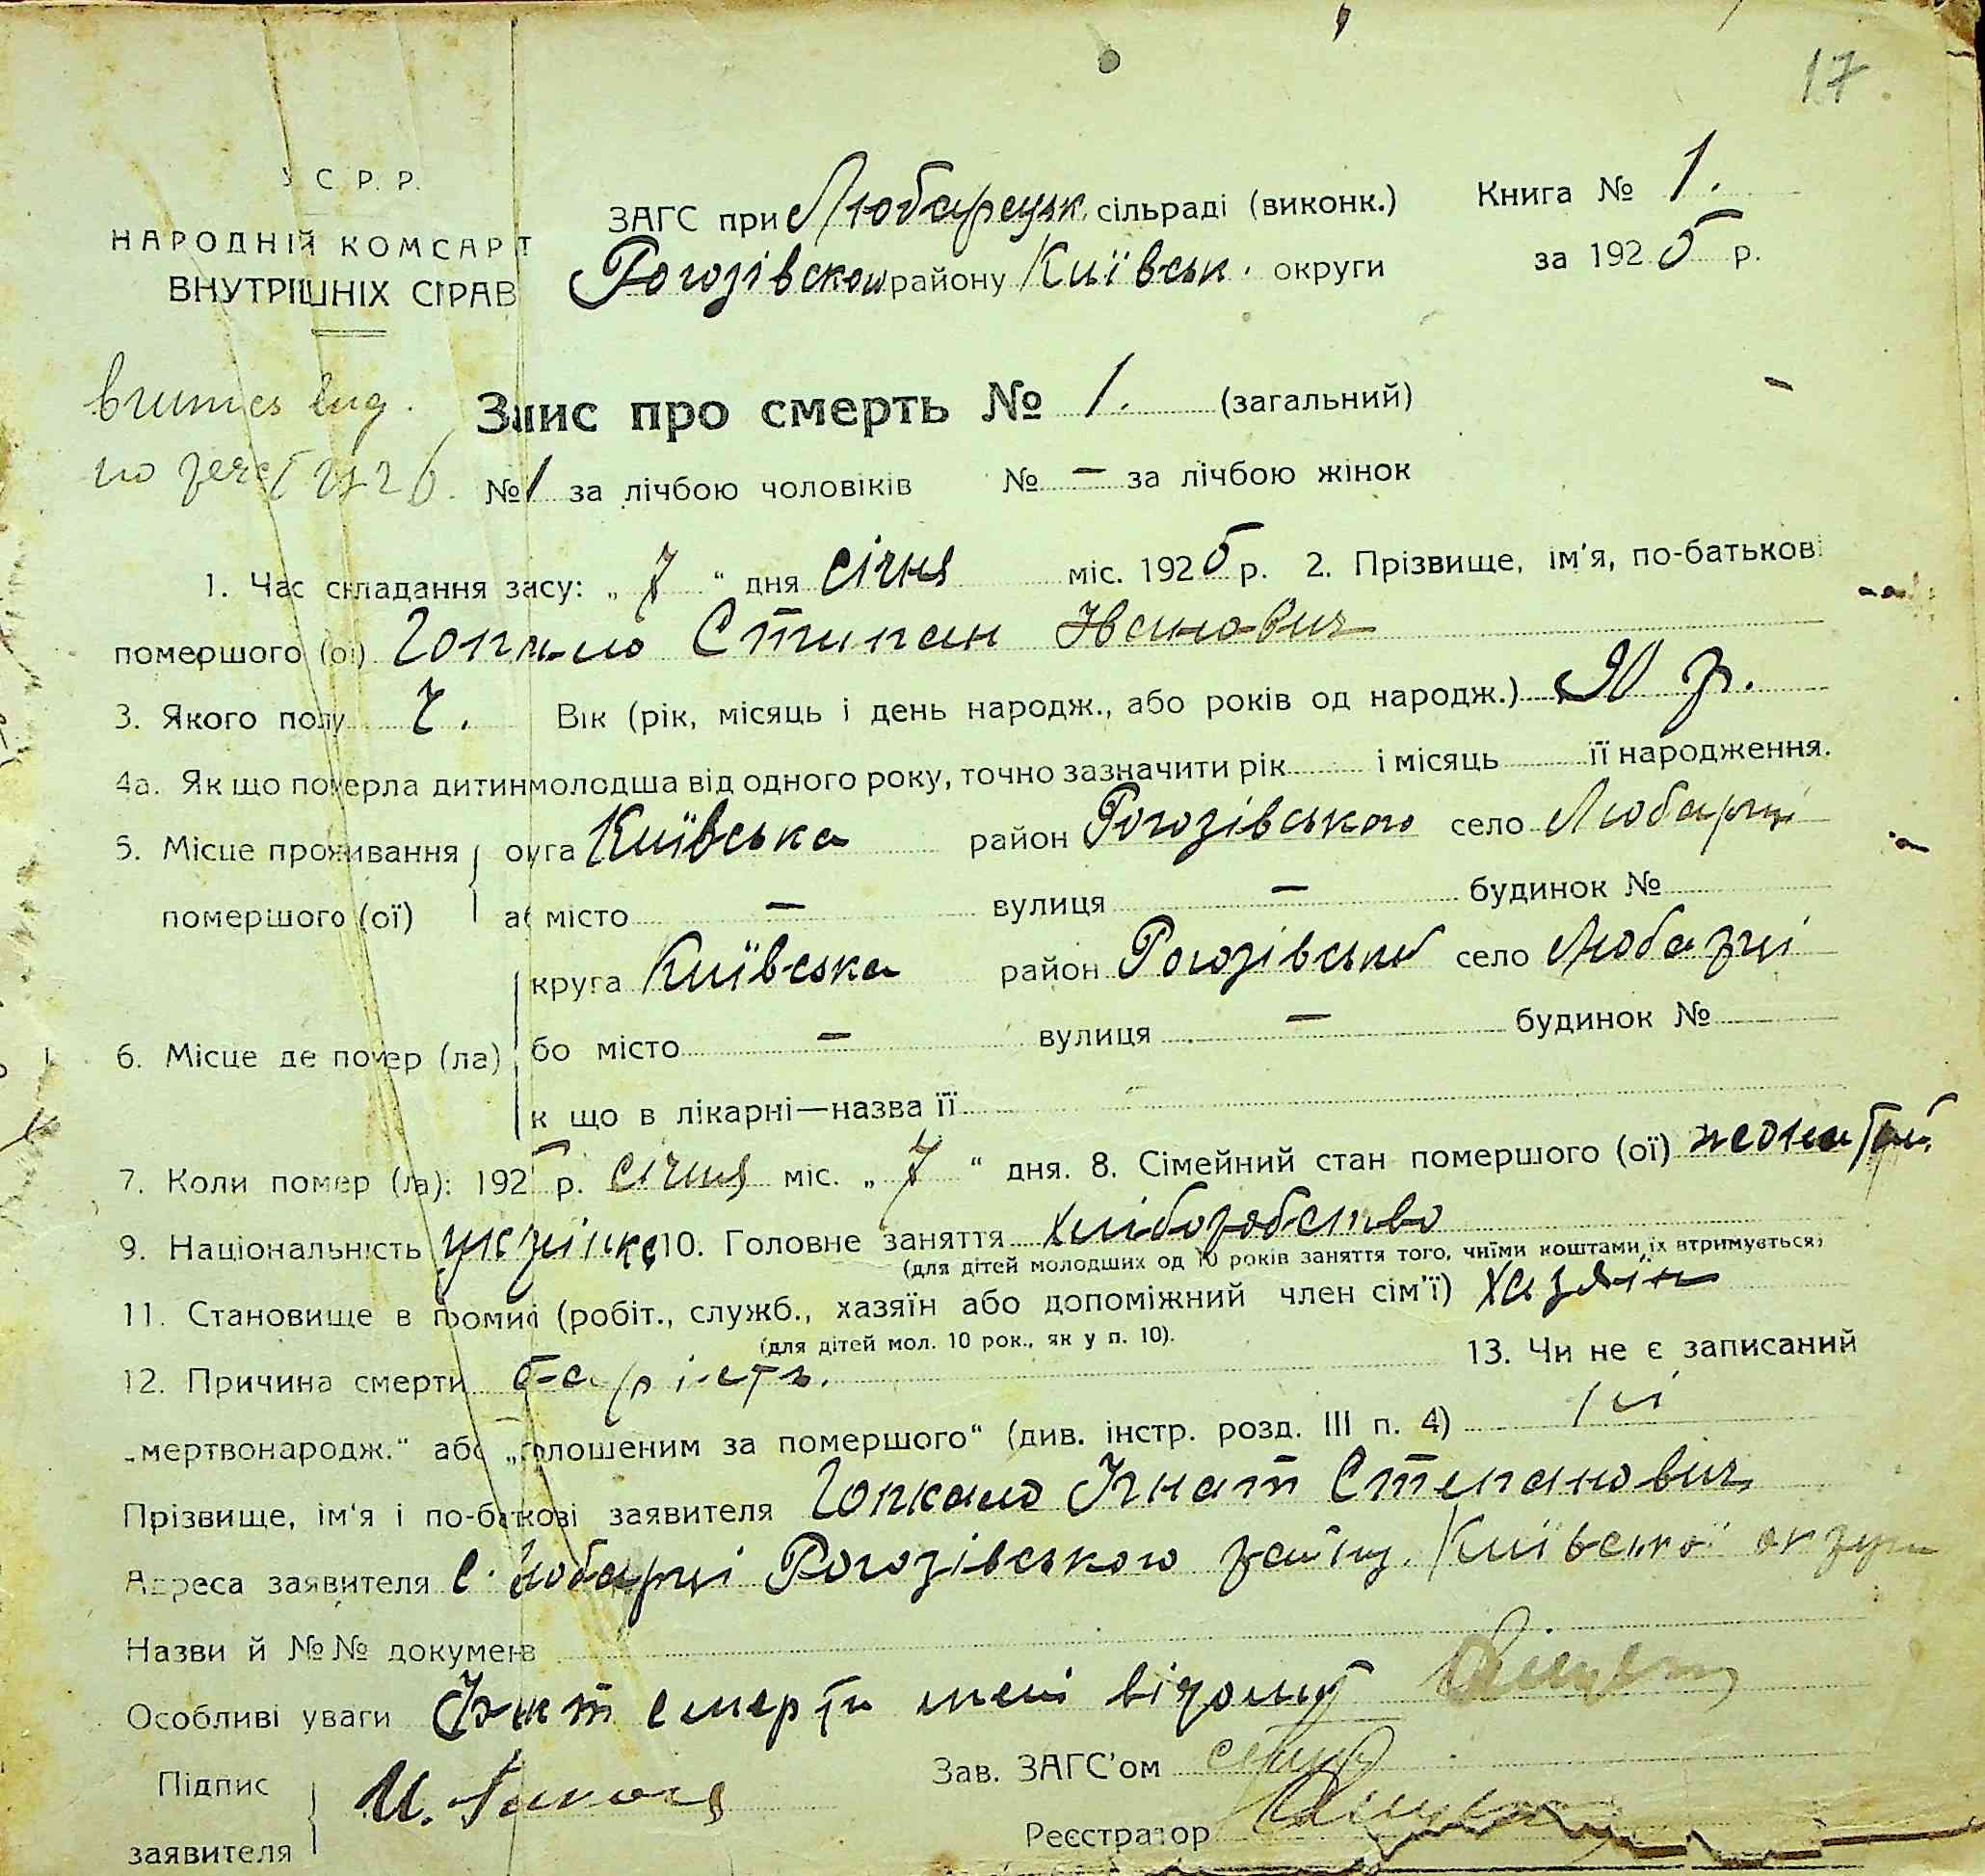 17
У С. Р. Р.
НАРОДНІЙ КОМСАРІТ
ВНУТРІШНІХ СПРАВ
ЗАГС при Любарецьк. сільраді (виконк.) Книга № 1.
Рогозівском району Київськ. округи за 1925 р.
Запис про смерть № 1. (загальний)
№ 1 за лічбою чоловіків № — за лічбою жінок
1. Час складання запису: „ 7 “ дня січня міс. 1925 р. 2. Прізвище, ім'я, по-батькові
помершого (ої) Гопкало Стипан Иванович
3. Якого полу ч. Вік (рік, місяць і день народж., або років од народж.) 90 р.
4а. Як що померла дитина молодша від одного року, точно зазначити рік і місяць її народження.
5. Місце проживання округа Київська район Рогозівського село Любарці
помершого (ої) або місто — вулиця — будинок №
округа Київська район Рогозівськ село Любарці
6. Місце де помер (ла) або місто — вулиця — будинок №
як що в лікарні—назва її
7. Коли помер (ла): 1925 р. січня міс. „ 7 “ дня. 8. Сімейний стан помершого (ої) жонатий
9. Національність 10. Головне заняття хліборобство
(для дітей молодших од 10 років заняття того, чиїми коштами їх втримується)
11. Становище в промислі (робіт., служб., хазяїн або допоміжний член сім'ї) хазяїн
(для дітей мол. 10 рок., як у п. 10).
12. Причина смерти старість. 13. Чи не є записаний
„мертвонародж.“ або „оголошеним за помершого“ (див. інстр. розд. III п. 4) ні
Прізвище, ім'я і по-батькові заявителя Гопкало Игнат Степанович
Адреса заявителя с. Любарці Рогозівського району Київської округи
Назви й №№ документів
Особливі уваги Факт смерти мені відомий
Підпис Зав. ЗАГС'ом
заявителя И. Реєстратор